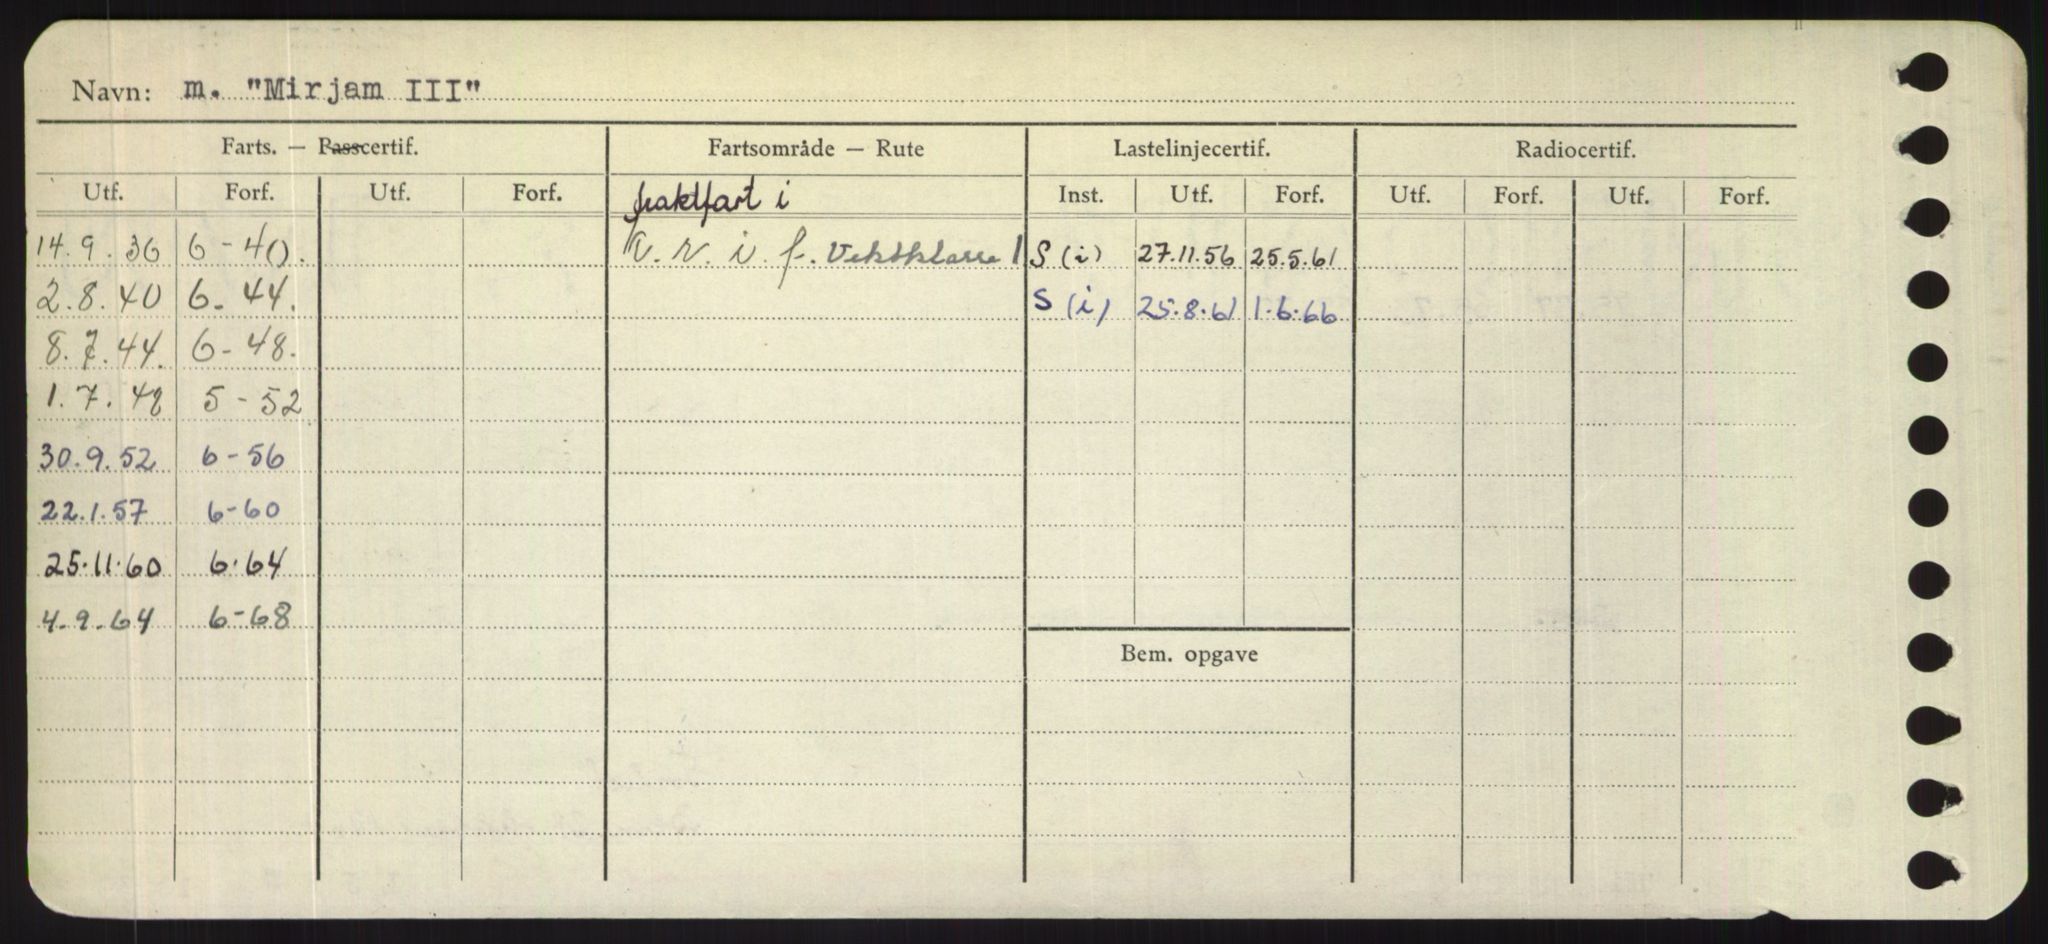 Navn: m. "Mirjam III"
Farts. — Passcertif. Fartsområde — Rute Lastelinjecertif. Radiocertif.
Utf. Forf. Utf. Forf. fraktfart i Inst. Utf. Forf. Utf. Forf. Utf. Forf.
14.9.36 6-40. i. f. Vektklasse 1 S (i) 27.11.56 25.5.61
2.8.40 6. 44. S (i) 25.8.61 1.6.66
8.7.44. 6-48.
1.7.48 5-52
30.9.52 6-56
22.1.57 6-60
25.11.60 6.64
4.9.64 6-68
Bem. opgave